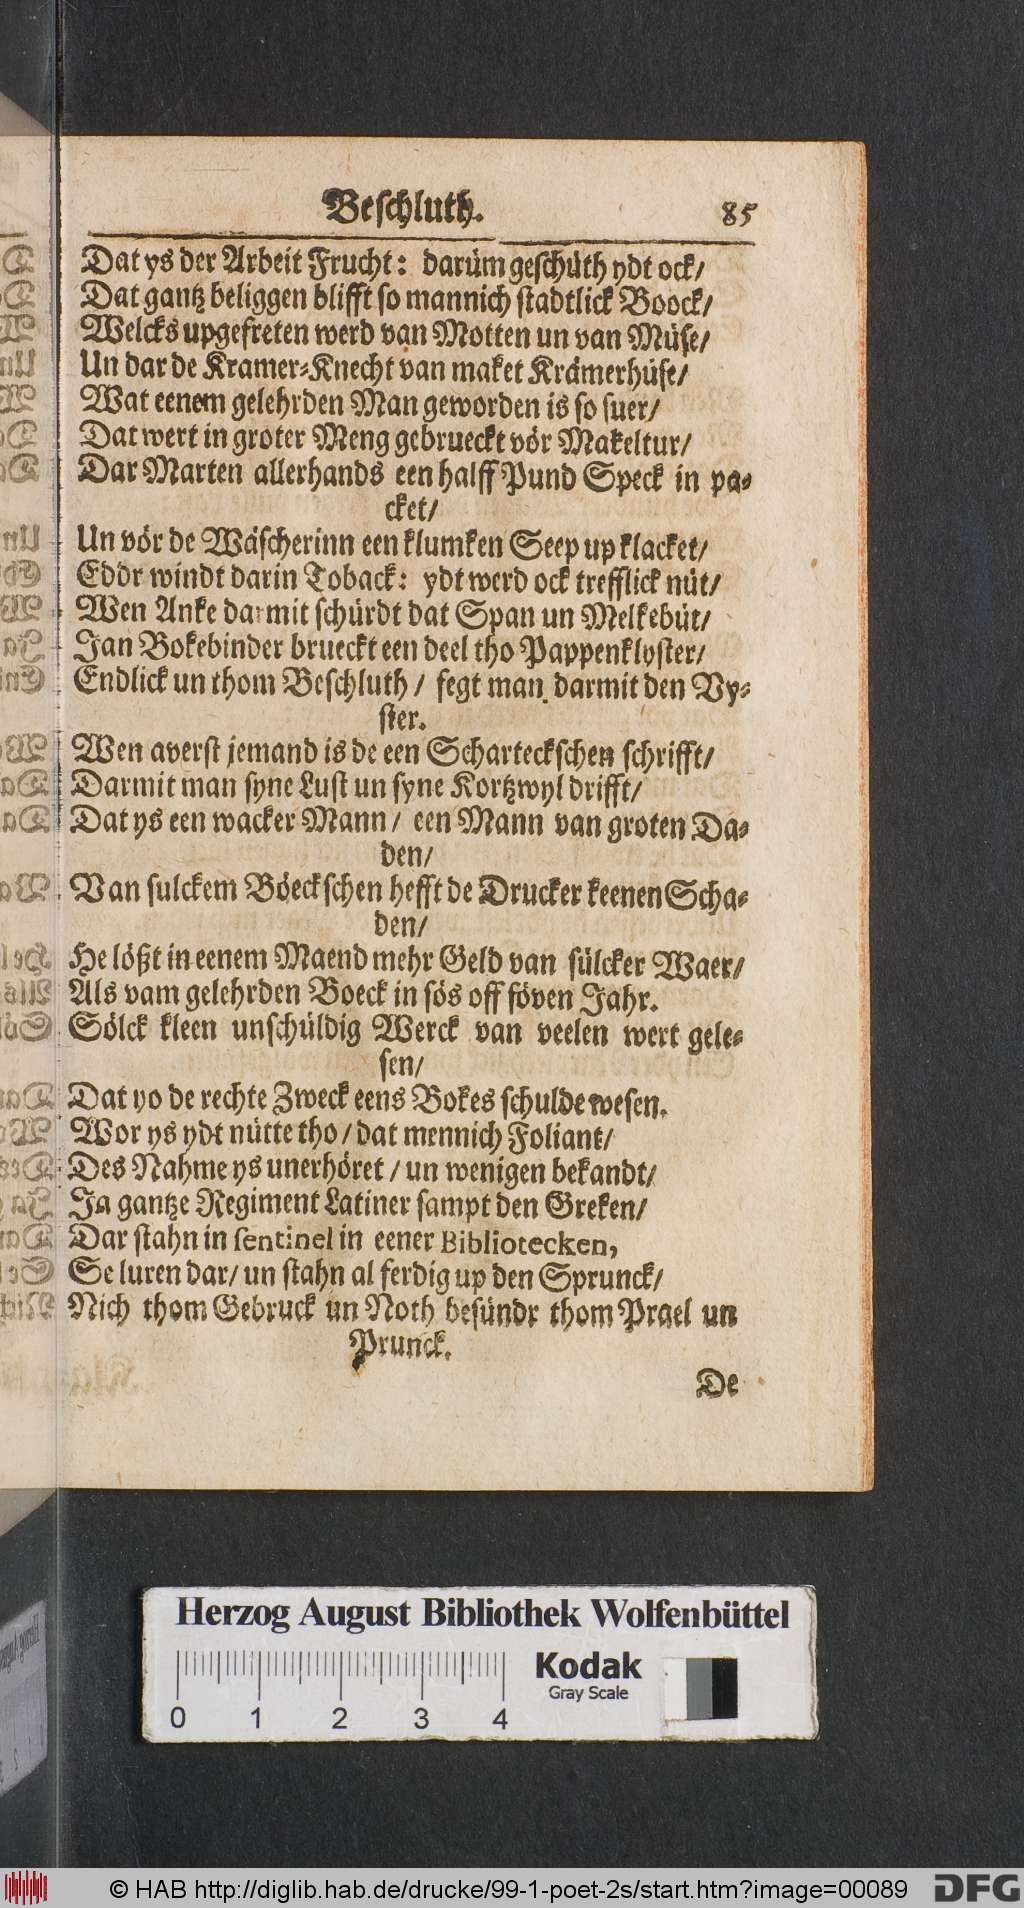 Beschluth. 85
Dat ys der Arbeit Frucht: darüm geschüth ydt ock/
Dat gantz beliggen blifft so mannich stadtlick Boock/
Welcks upgefreten werd van Motten un van Müse/
Un dar de Kramer-Knecht van maket Krämerhüse/
Wat eenem gelehrden Man geworden is so suer/
Dat wert in groter Meng gebrueckt vör Makeltur/
Dar Marten allerhands een halff Pund Speck in pa-
cket/
Un vör de Wäscherinn een klumken Seep up klacket/
Eddr windt darin Toback: ydt werd ock trefflick nüt/
Wen Anke darmit schürdt dat Span un Melkebüt/
Jan Bokebinder brueckt een deel tho Pappenklyster/
Endlick un thom Beschluth/ fegt man darmit den Vy-
ster.
Wen averst jemand is de een Scharteckschen schrifft/
Darmit man syne Lust un syne Kortzwyl drifft/
Dat ys een wacker Mann/ een Mann van groten Da-
den/
Van sulckem Böeckschen hefft de Drucker keenen Scha-
den/
He lößt in eenem Maend mehr Geld van sülcker Waer/
Als vam gelehrden Boeck in sös off söven Jahr.
Sölck kleen unschüldig Werck van veelen wert gele-
sen/
Dat yo de rechte Zweck eens Bokes schulde wesen.
Wor ys ydt nütte tho/ dat mennich Foliant/
Des Nahme ys unerhöret/ un wenigen bekandt/
Ja gantze Regiment Latiner sampt den Greken/
Dar stahn in sentinel in eener Bibliotecken,
Se luren dar/ un stahn al ferdig up den Sprunck/
Nich thom Gebruck un Noth besündr thom Prael un
Prunck.
De
Herzog August Bibliothek Wolfenbüttel
Kodak
Gray Scale
0 1 2 3 4
© HAB http://diglib.hab.de/drucke/99-1-poet-2s/start.htm?image=00089
DFG